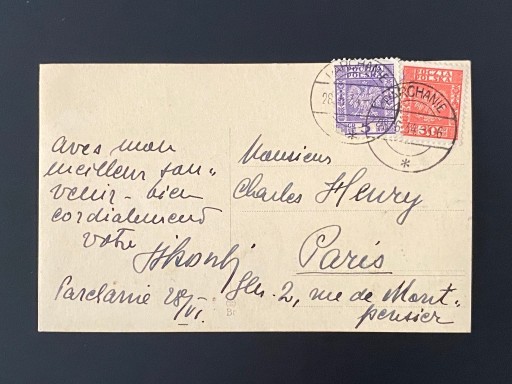 Avec mon
meilleur sou„
venir - bien
cordialement
votre
Parchanie 28/VI.
Monsieur
Charles Henry
Paris
2, rue de Mont„
pensier
POCZTA
POLSKA
5
POCZTA
POLSKA
30
PARCHANIE
28